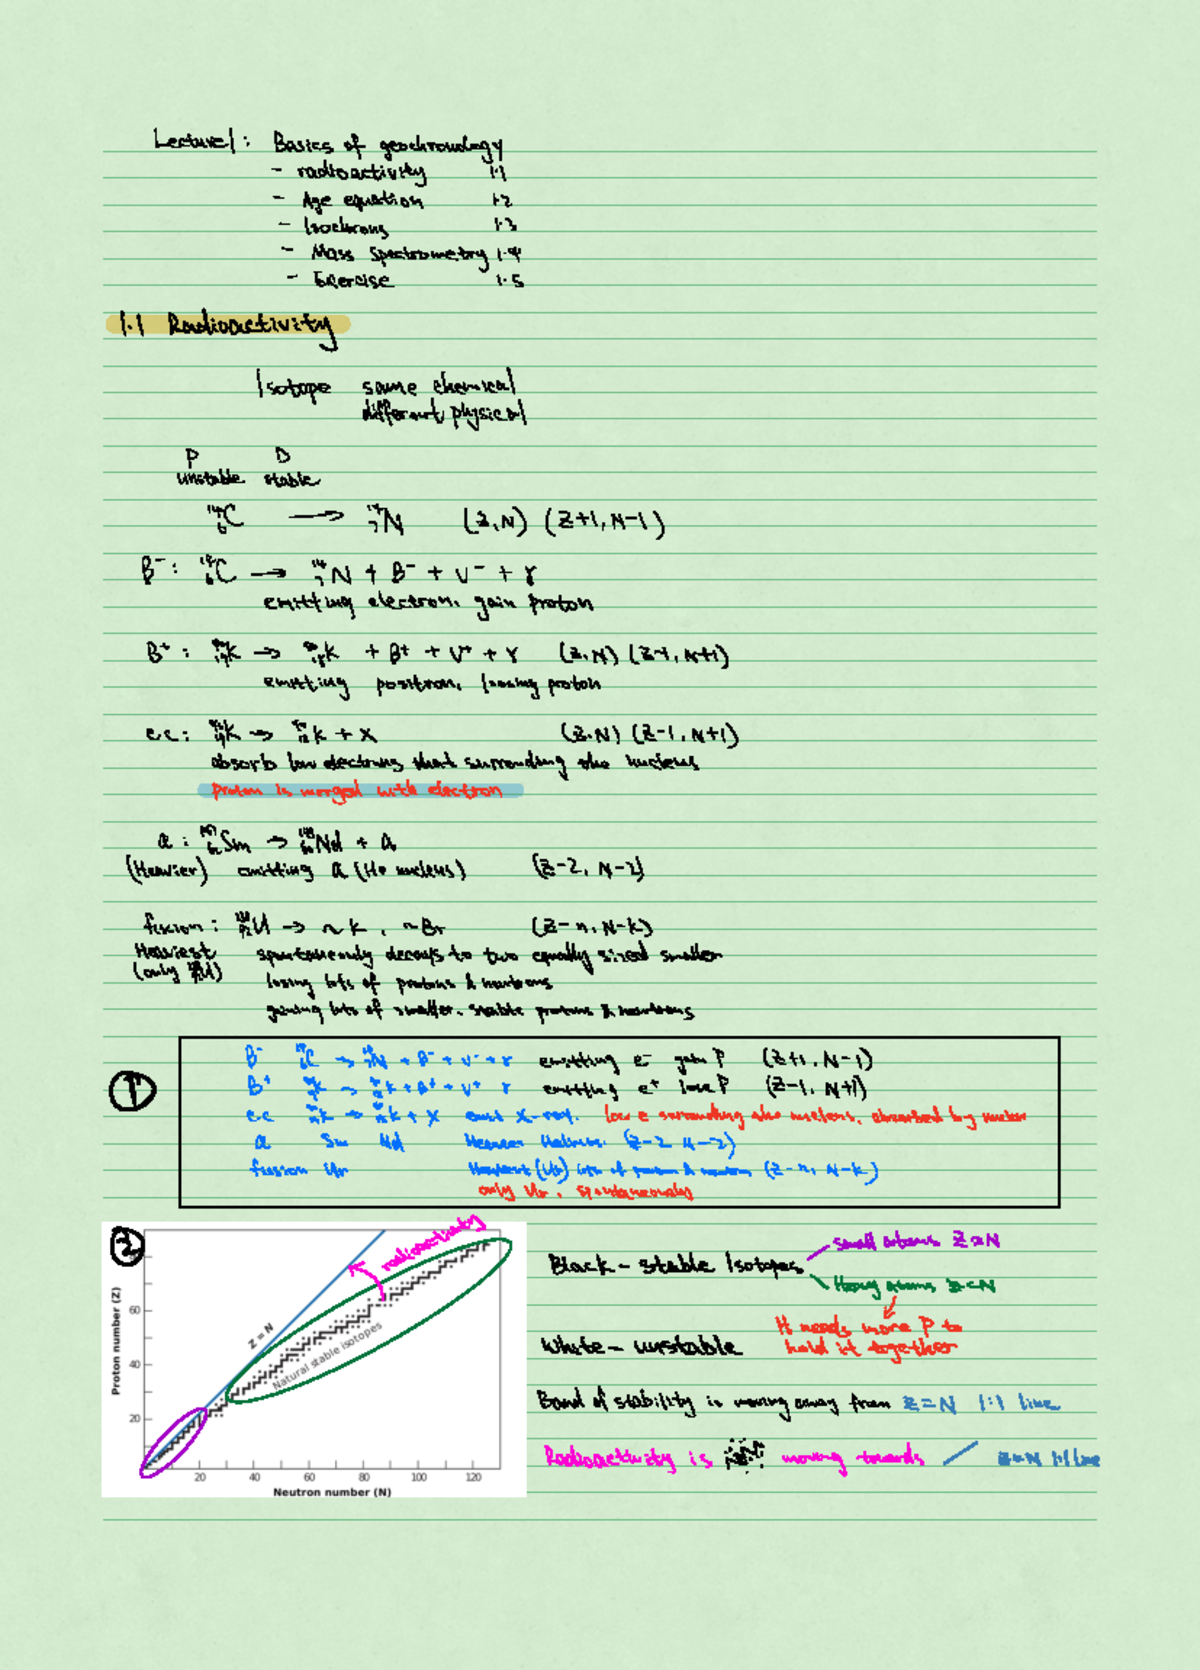 Lecture 1: Basics of geochronology
- radioactivity 1.1
- Age equation 1.2
- Isochrons 1.3
- Mass spectrometry 1.4
- Exercise 1.5
1.1 Radioactivity
Isotope same chemical
different physical
P D
unstable stable
¹⁴₆C → ¹⁴₇N (Z,N) (Z+1, N-1)
B⁻: ¹⁴₆C → ¹⁴₇N + B⁻ + V⁻ + γ
emitting electron, gain proton
B⁺: K → K + B⁺ + V⁺ + γ (Z,N) (Z-1, N+1)
emitting positron, loosing proton
e.c: K → K + X (Z,N) (Z-1, N+1)
absorb low electrons that surrounding the nucleus
proton is merged with electron
α: Sm → Nd + α
(Heavier) emitting α (He nucleus) (Z-2, N-2)
fusion: U → ~K, ~Br (Z-n, N-k)
Heaviest spontaneously decays to two equally sized smaller
(only U) losing lots of protons & neutrons
gaining lots of smaller, stable protons & neutrons
① B⁻ C → N + B⁻ + V⁻ + γ emitting e⁻ gain P (Z+1, N-1)
B⁺ K → K + B⁺ + V⁺ γ emitting e⁺ lose P (Z-1, N+1)
e.c K → K + X emit X-ray. low e surrounding the nucleus, absorbed by
α Sm Nd Heavier (Z-2 N-2)
fusion Ur Heaviest (Ur) lots of proton & neutron (Z-n, N-k)
only Ur, spontaneously
②
radioactivity
Z = N
Natural stable isotopes
Proton number (Z)
60
40
20
20 40 60 80 100 120
Neutron number (N)
Black - stable Isotopes
small atoms Z=N
Heavy atoms
It needs more P to
hold it together
White - unstable
Band of stability is moving away from Z=N 1:1 line
Radioactivity is moving towards Z=N 1:1 line